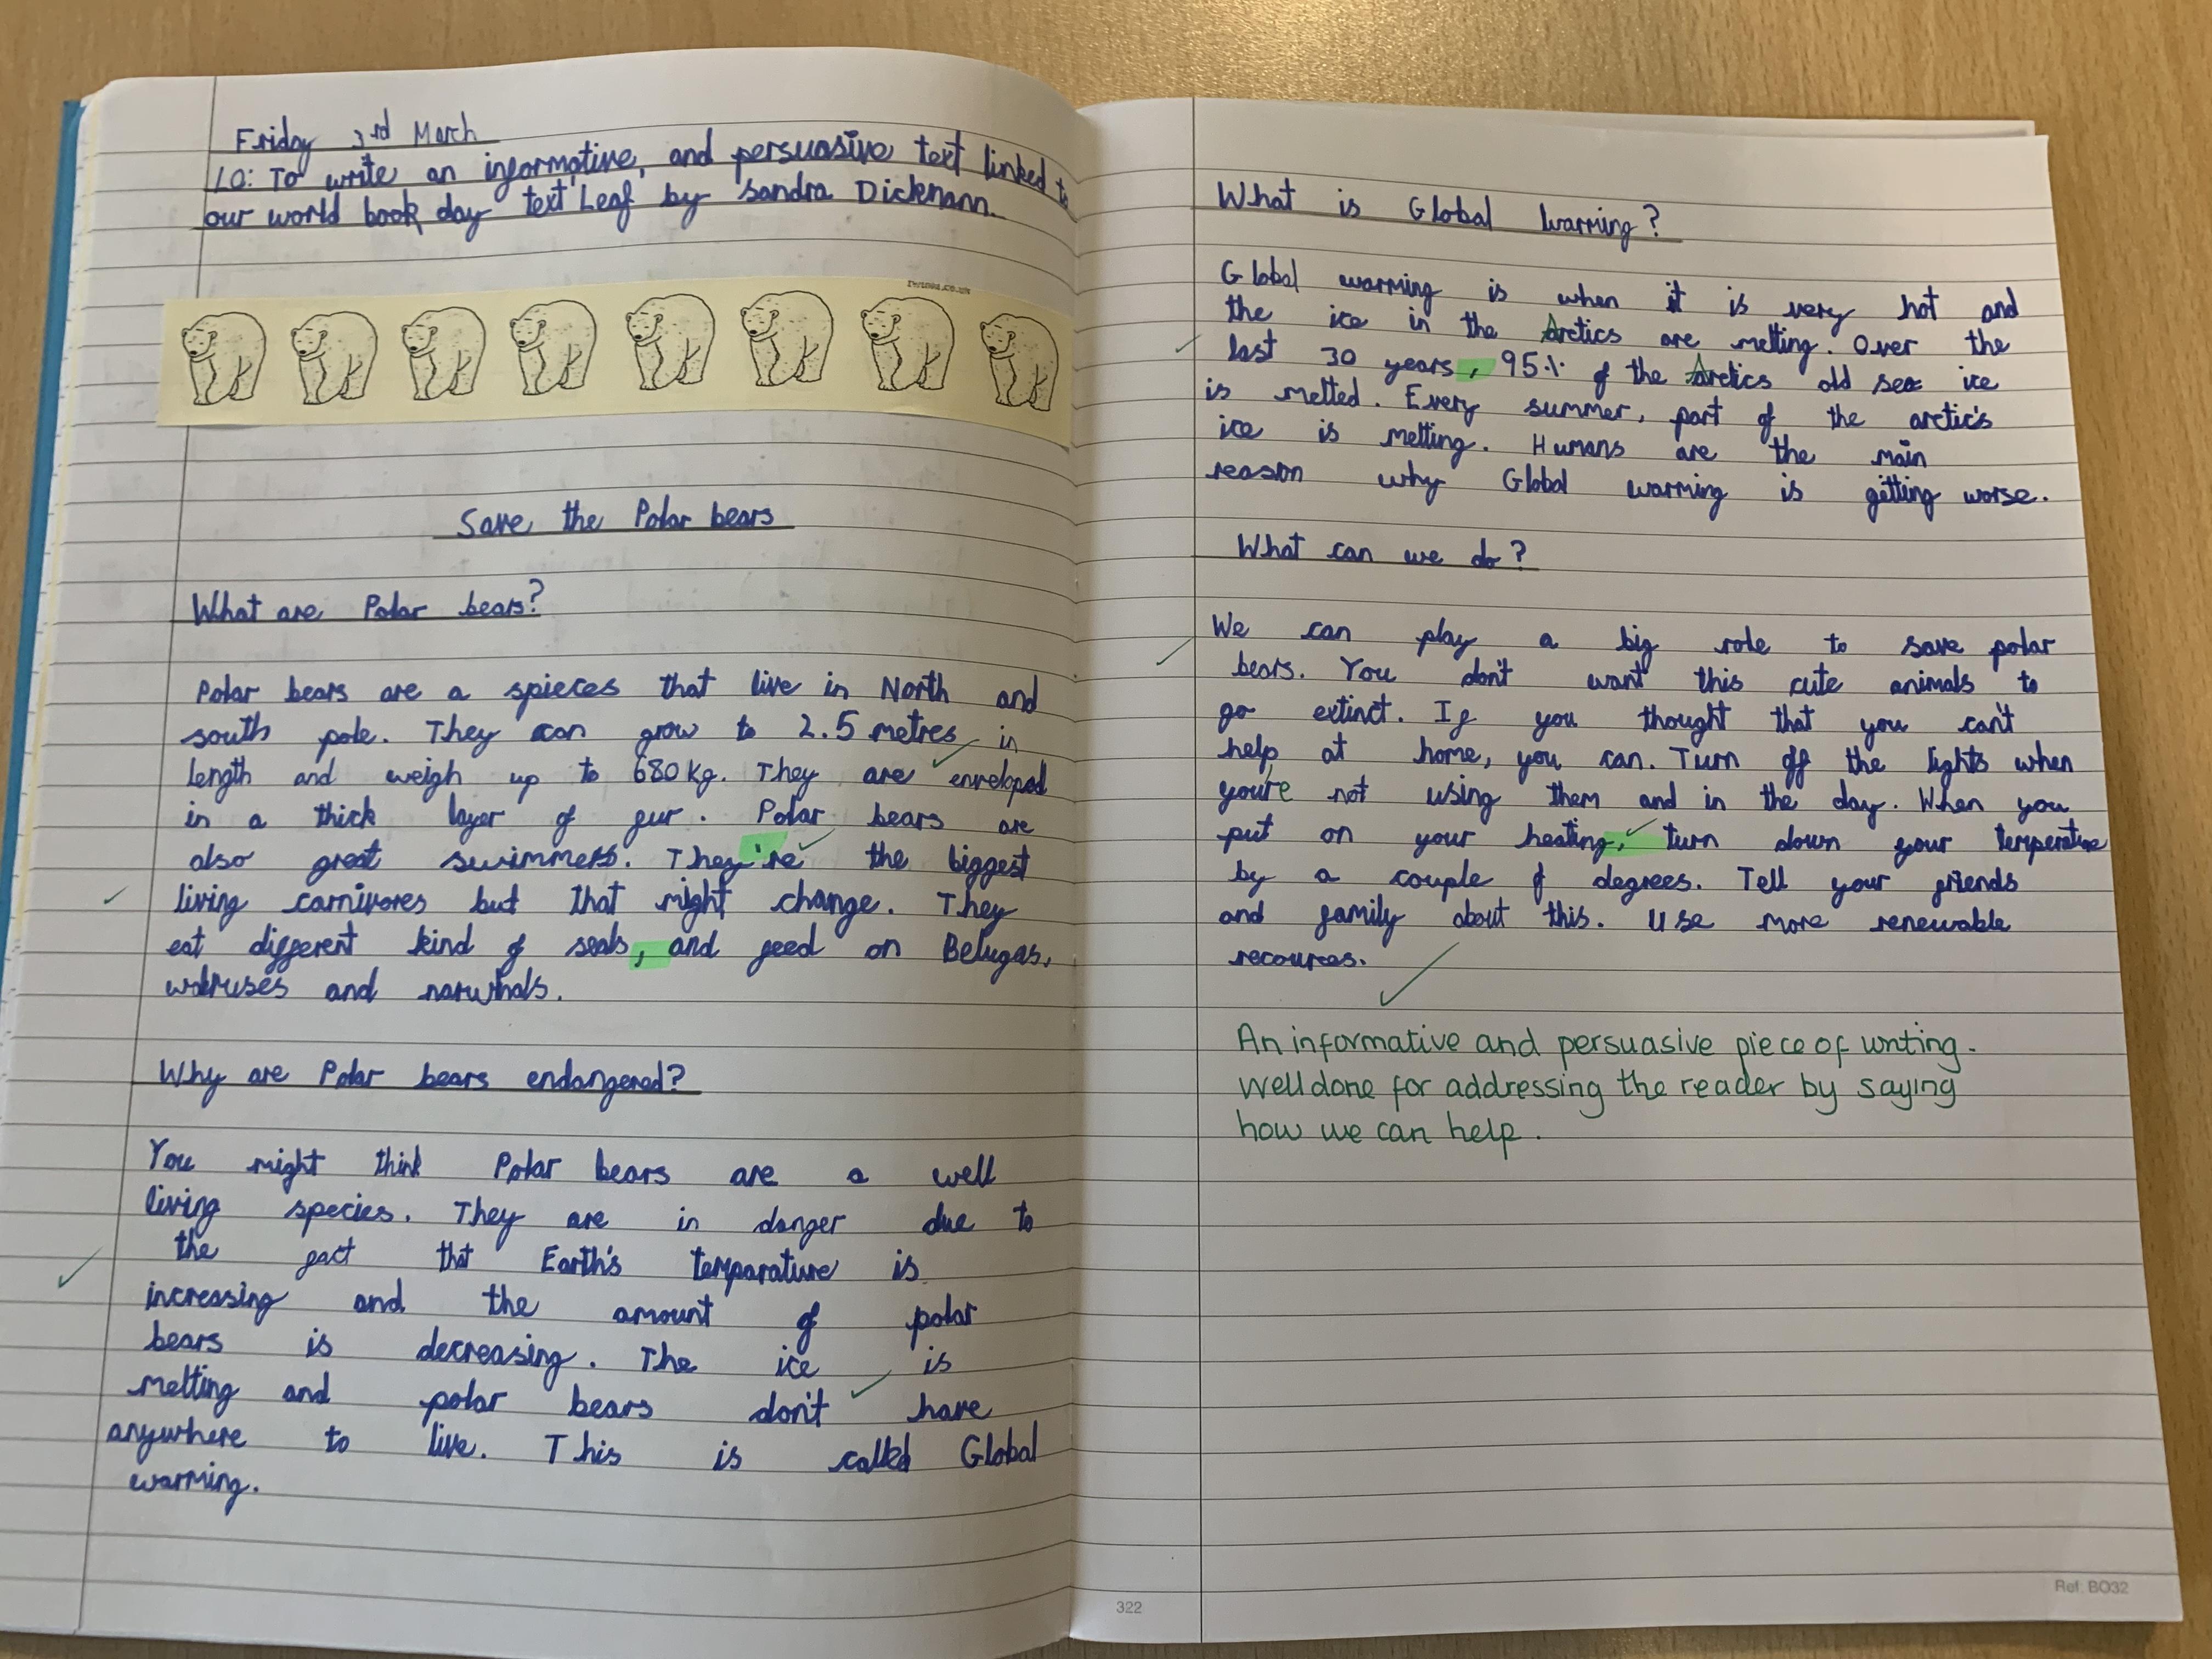 Friday 3rd March
LO: To write an informative, and persuasive text linked to
our world book day text 'Leaf by Sandra Dickmann.
Save the Polar bears
What are Polar bears?
Polar bears are a spieces that live in North and
south pole. They can grow to 2.5 metres in
length and weigh up to 680kg. They are enveloped
in a thick layer of fur. Polar bears are
also great swimmers. They're the biggest
living carnivores but that might change. They
eat different kind of seals, and feed on Belugas,
walruses and narwhals.
Why are Polar bears endangered?
You might think Polar bears are a well
living species. They are in danger due to
the fact that Earth's temparature is
increasing and the amount of polar
bears is decreasing. The ice is
melting and polar bears don't have
anywhere to live. This is called Global
warming.
322
What is Global warming?
Global warming is when it is very hot and
the ice in the Arctics are melting. Over the
last 30 years, 95% of the Arctics old sea ice
is melted. Every summer, part of the arctic's
ice is melting. Humans are the main
reason why Global warming is getting worse.
What can we do?
We can play a big role to save polar
bears. You don't want this cute animals to
go extinct. If you thought that you can't
help at home, you can. Turn off the lights when
you're not using them and in the day. When you
put on your heating, turn down your temperature
by a couple of degrees. Tell your friends
and family about this. Use more renewable
recources.
An informative and persuasive piece of writing.
Well done for addressing the reader by saying
how we can help.
Ref: BO32